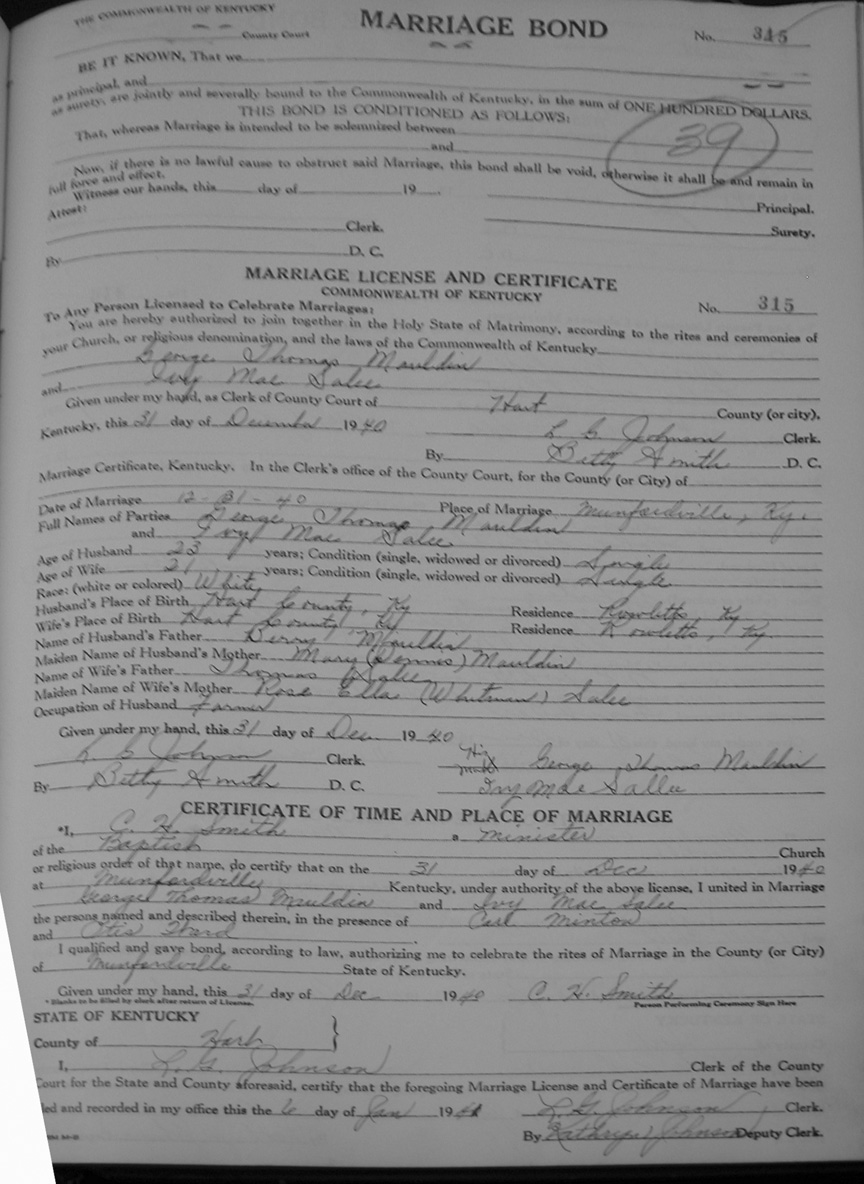 THE COMMONWEALTH OF KENTUCKY
County Court
MARRIAGE BOND
No. 315
BE IT KNOWN, That we
as principal, and
as surety, are jointly and severally bound to the Commonwealth of Kentucky, in the sum of ONE HUNDRED DOLLARS.
THIS BOND IS CONDITIONED AS FOLLOWS:
That, whereas Marriage is intended to be solemnized between
and
39
Now, if there is no lawful cause to obstruct said Marriage, this bond shall be void, otherwise it shall be and remain in
full force and effect.
Witness our hands, this day of 19 .
Principal.
Attest:
Clerk.
Surety.
By D. C.
MARRIAGE LICENSE AND CERTIFICATE
COMMONWEALTH OF KENTUCKY
No. 315
To Any Person Licensed to Celebrate Marriages:
You are hereby authorized to join together in the Holy State of Matrimony, according to the rites and ceremonies of
your Church, or religious denomination, and the laws of the Commonwealth of Kentucky
George Thomas Mauldin
and Ivy Mae Salee
Given under my hand, as Clerk of County Court of Hart County (or city),
Kentucky, this 31 day of December 1940 L G Johnson Clerk.
By Betty Smith D. C.
Marriage Certificate, Kentucky. In the Clerk's office of the County Court, for the County (or City) of
Date of Marriage 12-31-40 Place of Marriage Munfordville, Ky.
Full Names of Parties George Thomas Mauldin
and Ivy Mae Salee
Age of Husband 23 years; Condition (single, widowed or divorced) Single
Age of Wife 21 years; Condition (single, widowed or divorced) Single
Race: (white or colored) White
Husband's Place of Birth Hart County, Ky Residence Rowletts, Ky
Wife's Place of Birth Hart County, Ky Residence Rowletts, Ky
Name of Husband's Father Mauldin
Maiden Name of Husband's Mother Mary (Dennis) Mauldin
Name of Wife's Father Thomas Salee
Maiden Name of Wife's Mother Rose Ella (Whitman) Salee
Occupation of Husband Farmer
Given under my hand, this 31 day of Dec 1940
L G Johnson Clerk. His mark George Thomas Mauldin
By Betty Smith D. C. Ivy Mae Sallee
CERTIFICATE OF TIME AND PLACE OF MARRIAGE
*I, C. H. Smith a minister
of the Baptist Church
or religious order of that name, do certify that on the 31 day of Dec 1940
at Munfordville Kentucky, under authority of the above license, I united in Marriage
George Thomas Mauldin and Ivy Mae Salee
the persons named and described therein, in the presence of Carl Minton
and Otis Ward
I qualified and gave bond, according to law, authorizing me to celebrate the rites of Marriage in the County (or City)
of Munfordville State of Kentucky.
Given under my hand, this 31 day of Dec 1940 C. H. Smith
* Blanks to be filled by clerk after return of License. Person Performing Ceremony Sign Here
STATE OF KENTUCKY
County of Hart
I, L. G. Johnson Clerk of the County
Court for the State and County aforesaid, certify that the foregoing Marriage License and Certificate of Marriage have been
led and recorded in my office this the 6 day of Jan 1941 L. G. Johnson Clerk.
By Kathryn Johnson Deputy Clerk.